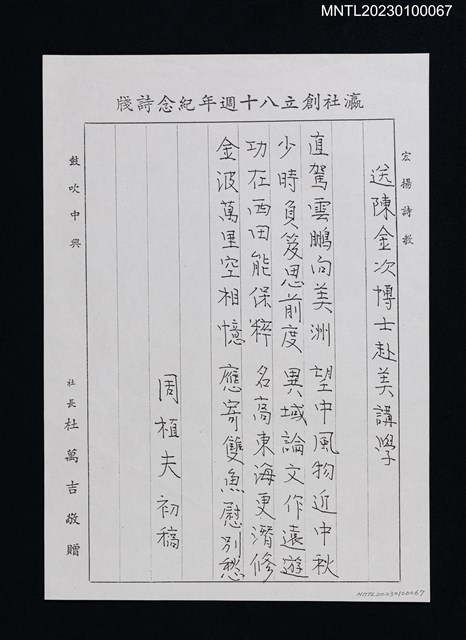 MNTL20230100067
瀛社創立八十週年紀念詩牋
宏揚詩教
送陳金次博士赴美講學
直駕雲鵬向美洲 望中風物近中秋
少時負笈思前度 異域論文作遠遊
功在西田能保粹 名高東海更潛修
金波萬里空相憶 應寄雙魚慰別愁
周植夫初稿
鼓吹中興
社長 杜萬吉敬贈
MNTL20230100067